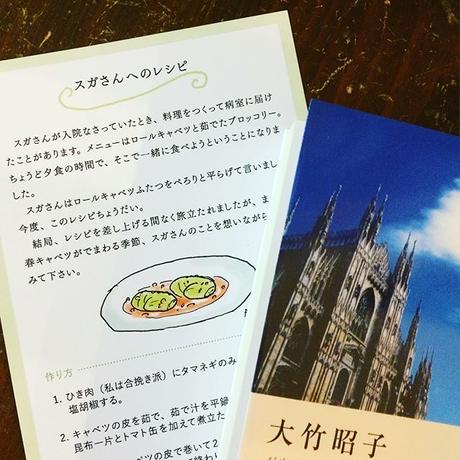 スガさんへのレシピ
スガさんが入院なさっていたとき、料理をつくって病室に届け
たことがあります。メニューはロールキャベツと茹でたブロッコリー。
ちょうど夕食の時間で、そこで一緒に食べようということになりま
した。
スガさんはロールキャベツふたつをぺろりと平らげて言いまし
今度、このレシピちょうだい。
結局、レシピを差し上げる間なく旅立たれましたが、ま
春キャベツがでまわる季節、スガさんのことを想いながら
みて下さい。
作り方
1. ひき肉（私は合挽き派）にタマネギのみ
塩胡椒する。
2. キャベツの皮を茹で、茹で汁を平鍋
昆布一片とトマト缶を加えて煮立た
キャベツの皮で巻いて2
大竹昭子